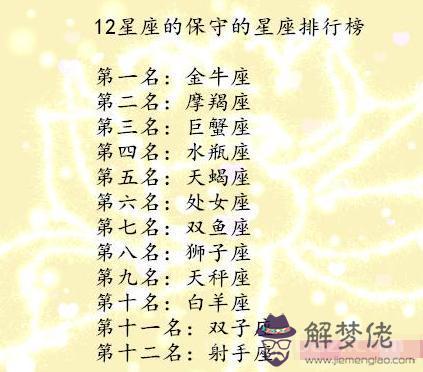 12星座的保守的星座排行榜
第一名：金牛座
第二名：摩羯座
第三名：巨蟹座
第四名：水瓶座
第五名：天蝎座
第六名：处女座
第七名：双鱼座
第八名：狮子座
第九名：天秤座
第十名：白羊座
第十一名：双子座
第十二名：射手座
解梦佬
www.jiemenglao.com